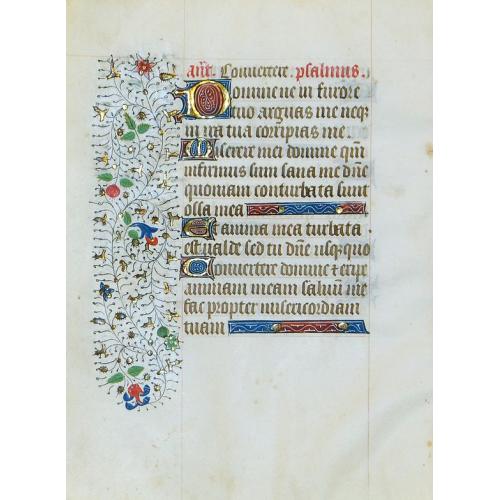 Ant. Convertere. psalmus.
Domine ne in furore
tuo arguas me neq
in ira tua corripias me.
Miserere mei domine qm
infirmus sum sana me dne
quoniam conturbata sunt
ossa mea
Et anima mea turbata
est valde sed tu dne usq quo
Convertere domine et eripe
animam meam salvu me
fac propter misericordiam
tuam